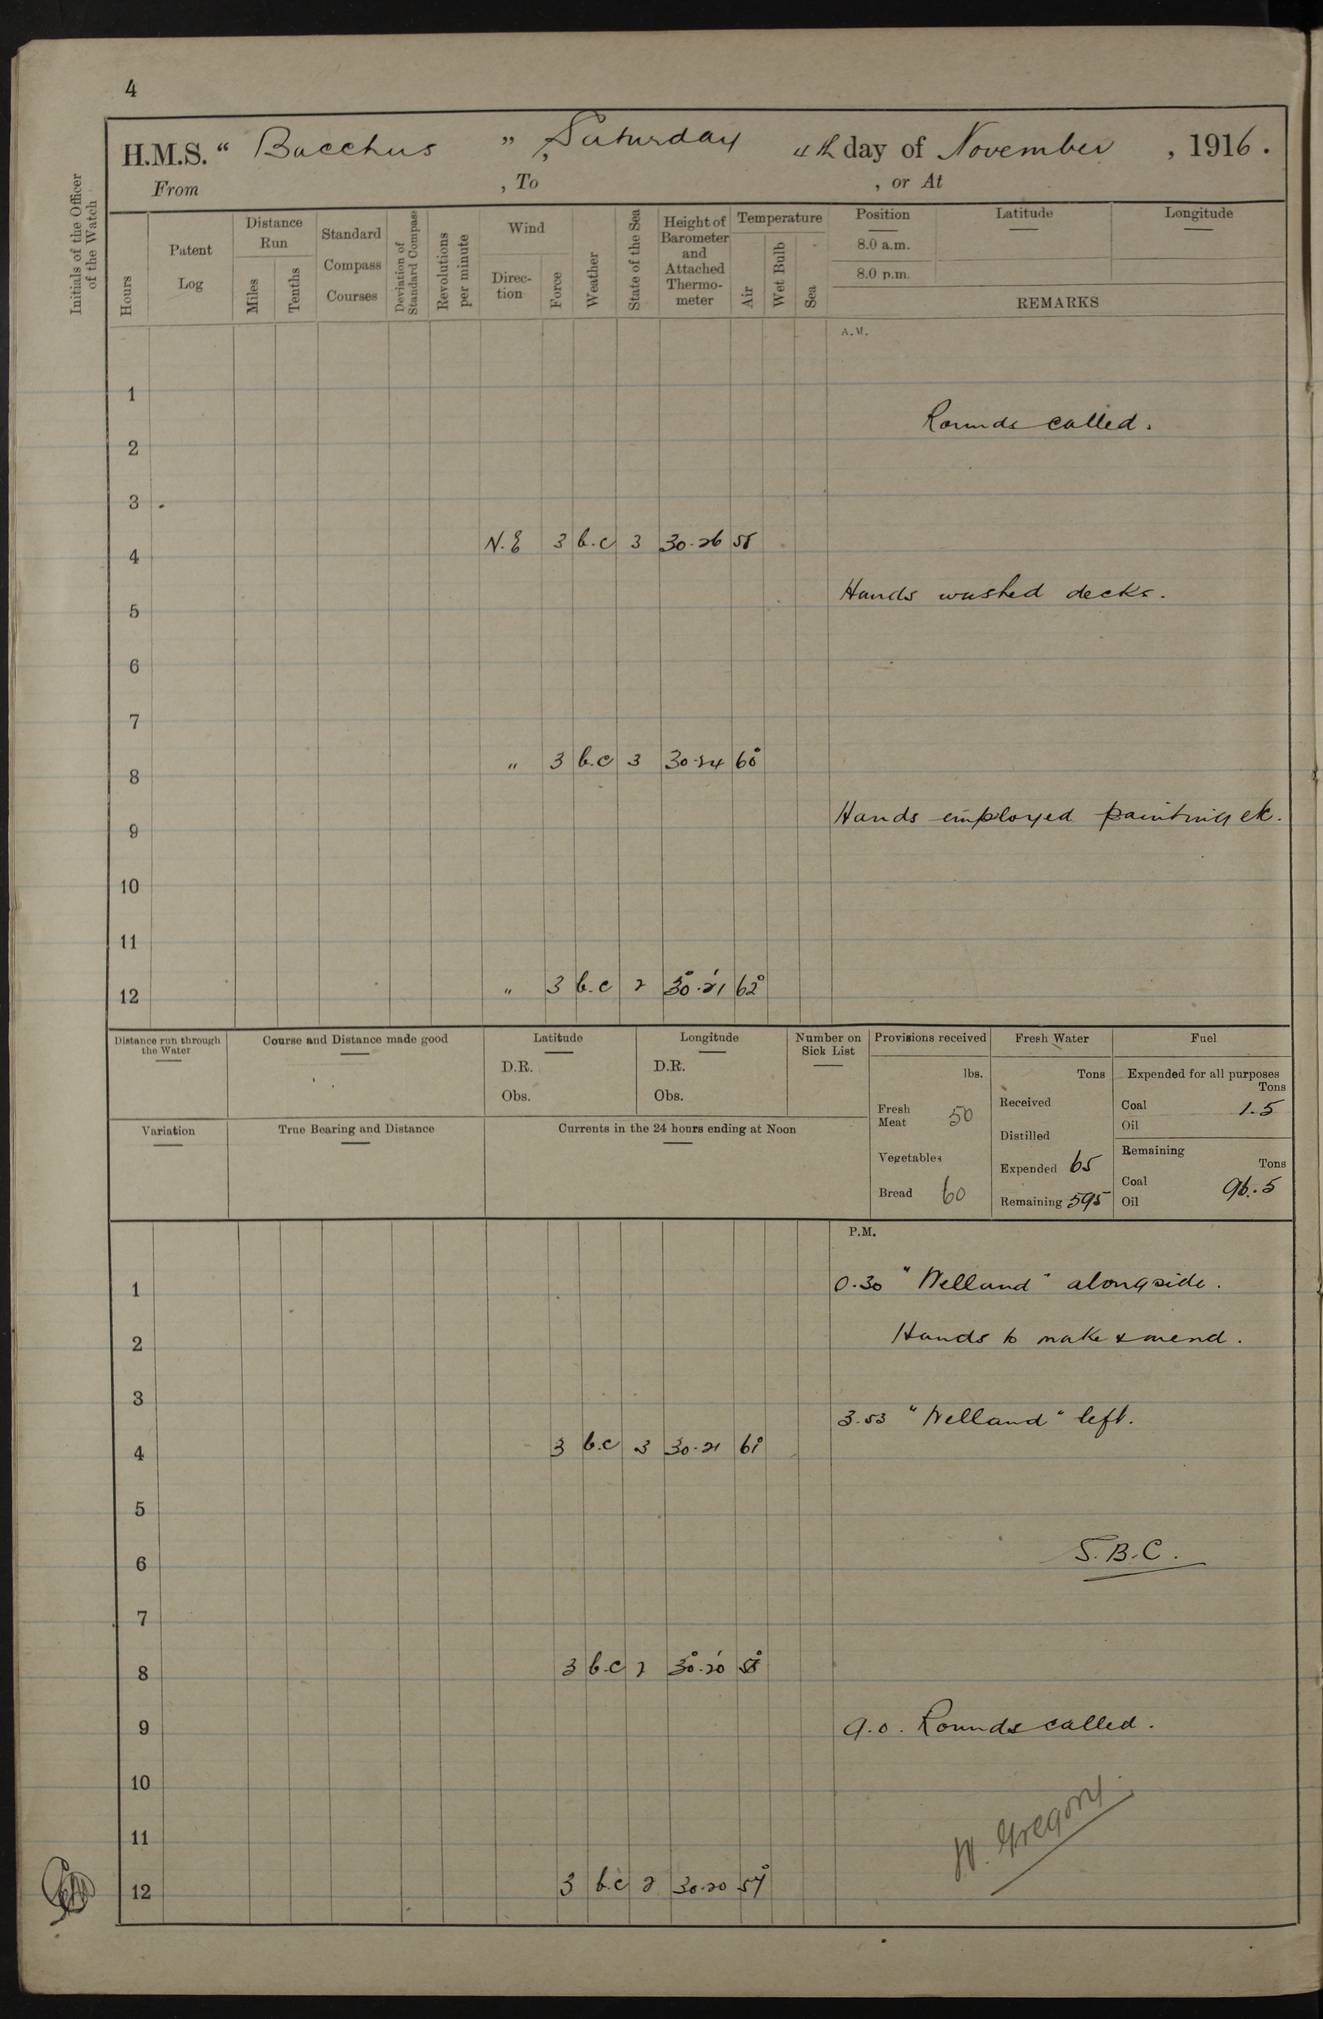 4
H.M.S. “ Bacchus ” , Saturday 4th day of November , 1916 .
From , To , or At
Initials of the Officer of the Watch
Hours
Patent Log
Distance Run
Miles
Tenths
Standard Compass Courses
Deviation of Standard Compass
Revolutions per minute
Wind
Direc-tion
Force
Weather
State of the Sea
Height of Barometer and Attached Thermo-meter
Temperature
Air
Wet Bulb
Sea
Position
8.0 a.m.
8.0 p.m.
Latitude
Longitude
REMARKS
A.M.
1
Rounds called.
2
3
4 N.E 3 b.c 3 30.26 58
Hands washed decks.
5
6
7
8 " 3 b.c 3 30.24 60°
Hands employed painting etc.
9
10
11
12 " 3 b.c 2 30.21 62°
Distance run through the Water
Course and Distance made good
Latitude
D.R.
Obs.
Longitude
D.R.
Obs.
Number on Sick List
Provisions received
lbs.
Fresh Meat 50
Vegetables
Bread 60
Fresh Water
Tons
Received
Distilled
Expended 65
Remaining 595
Fuel
Expended for all purposes
Tons
Coal 1.5
Oil
Remaining
Tons
Coal 96.5
Oil
Variation
True Bearing and Distance
Currents in the 24 hours ending at Noon
P.M.
1 0.30 "Welland" alongside.
2 Hands to make & mend.
3
3.53 "Welland" left.
4 3 b.c 3 30.21 61°
5
6 S.B.C.
7
8 3 b.c 2 30.20 58°
9 9.0. Rounds called.
10
11 W. Gregory.
12 3 b.c 2 30.20 57°